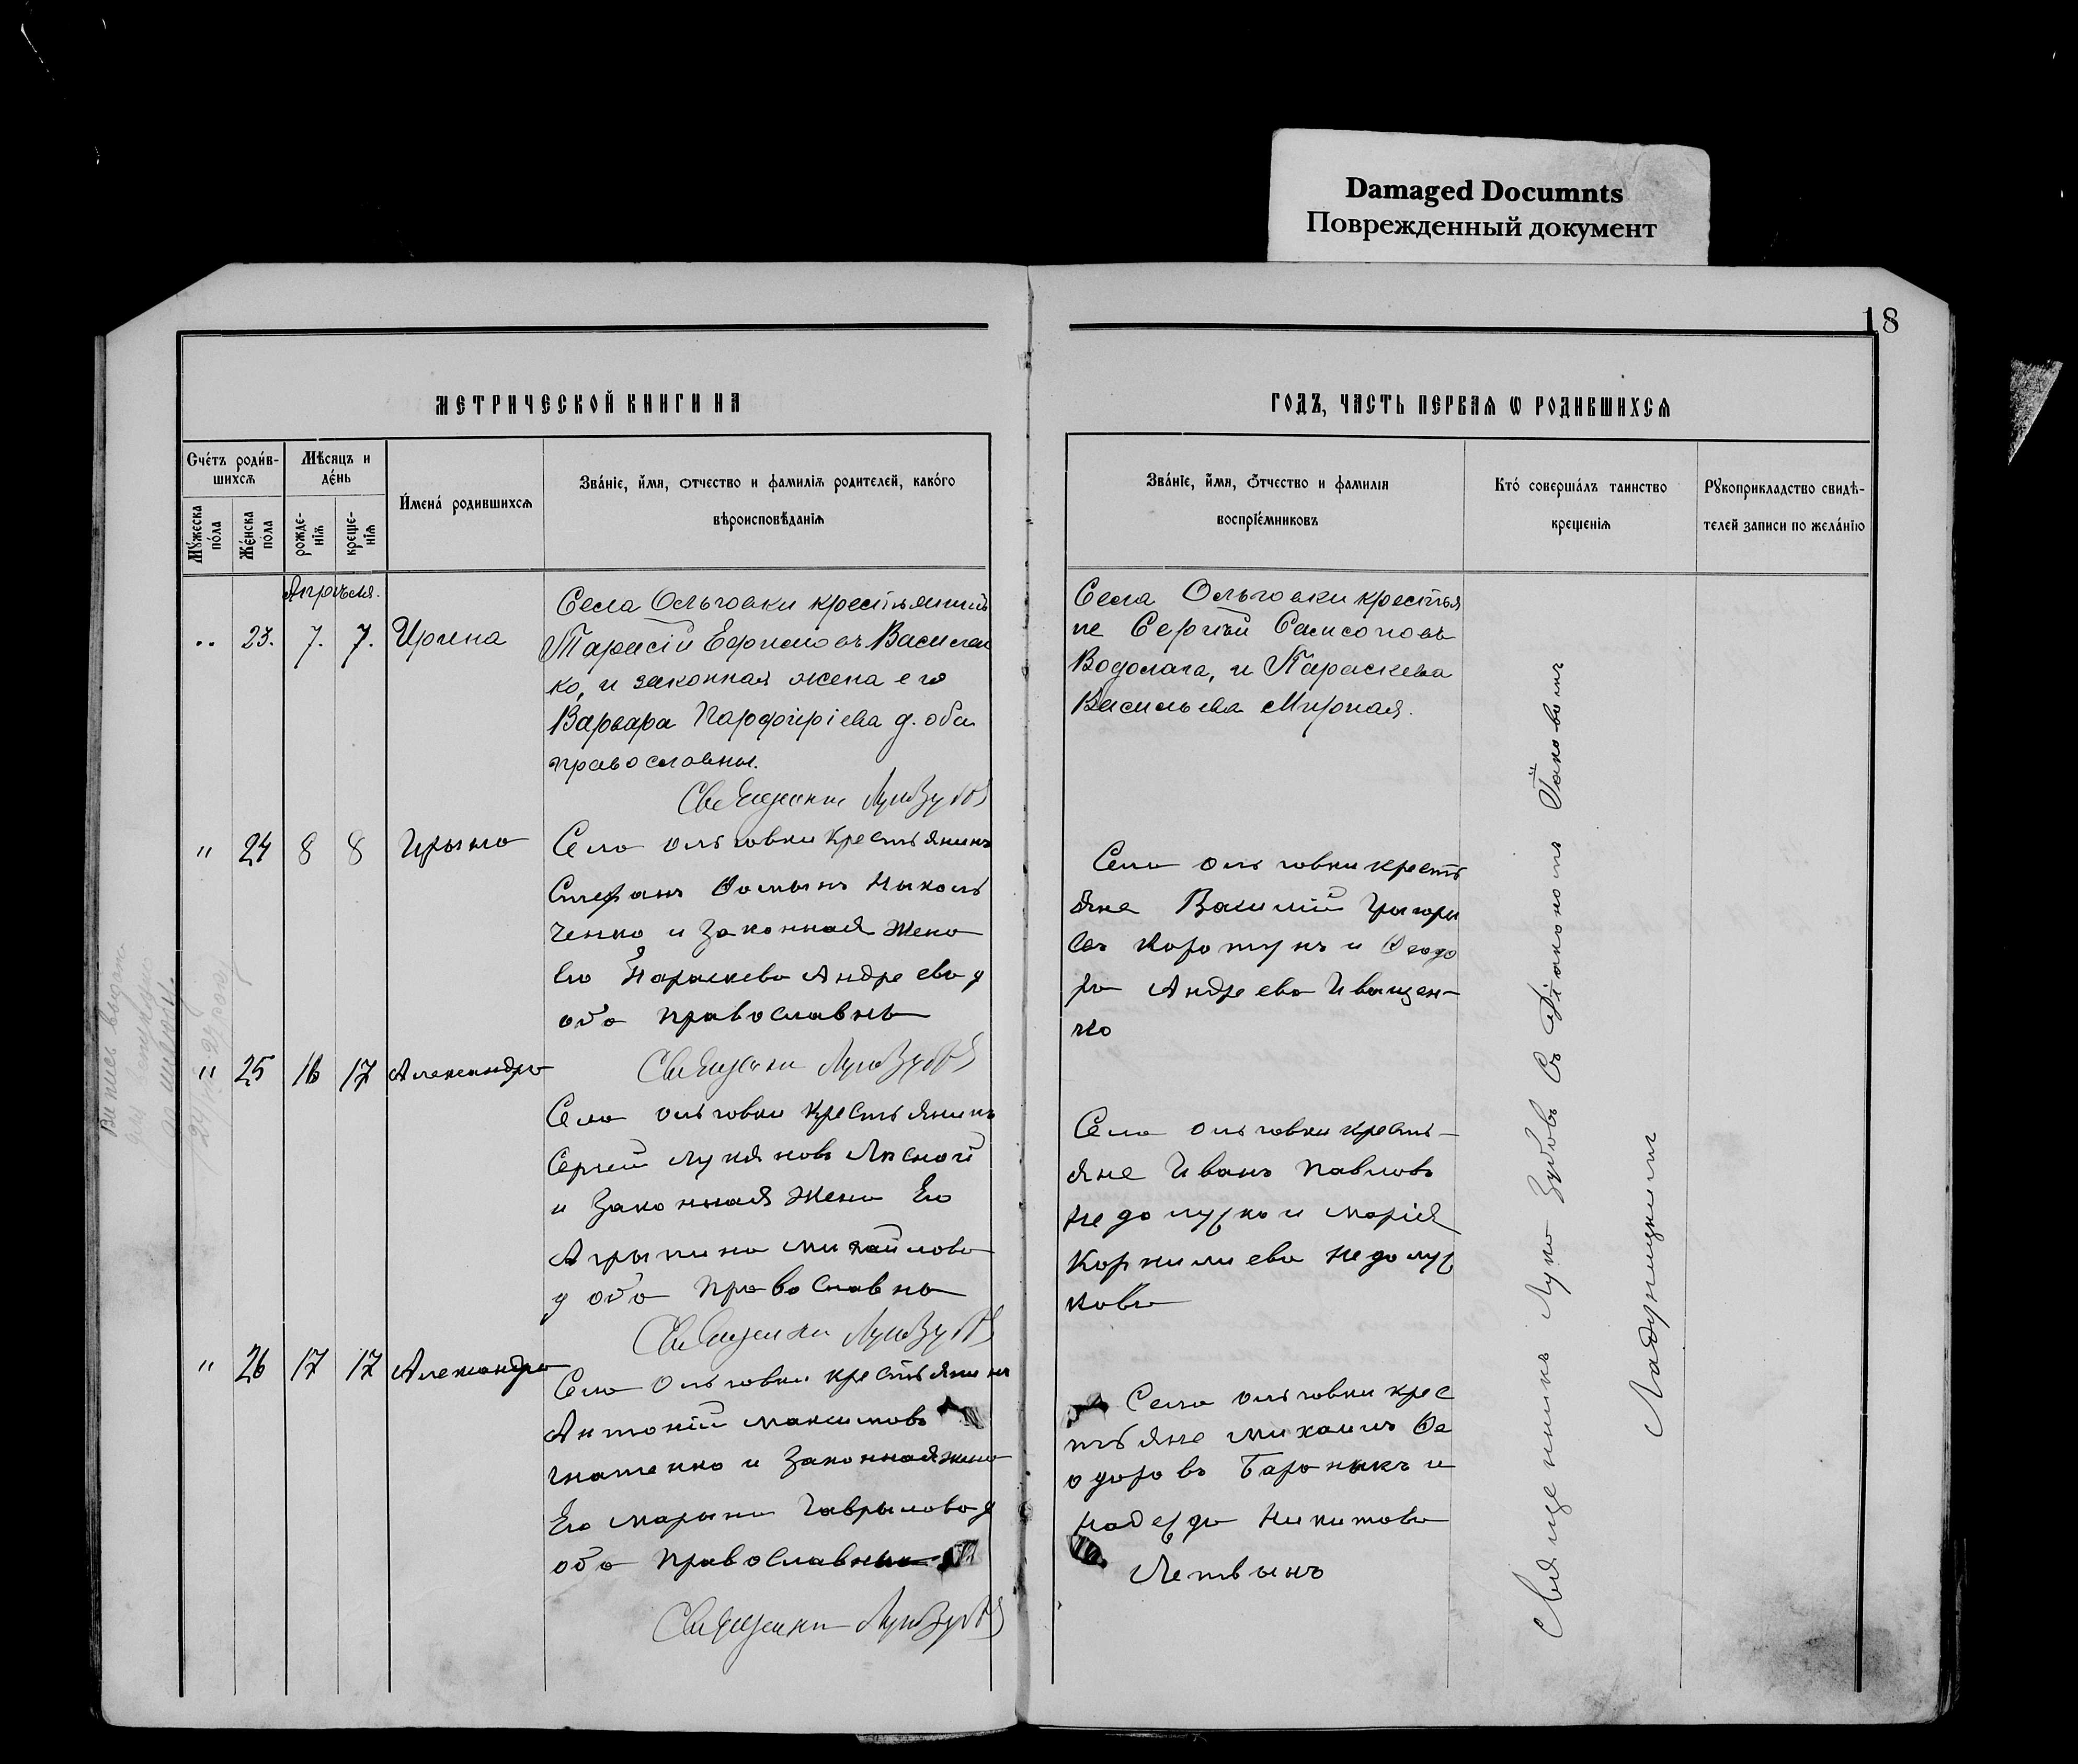 Damaged Documnts
Поврежденный документ
18
МЕТРИЧЕСКОЙ КНИГИ НА
ГОДЪ, ЧАСТЬ ПЕРВАЯ Ѡ РОДИВШИХСЯ
Счетъ родив-
шихся
Мужеска
пола
Женска
пола
Мѣсяцъ и
день
рожде-
нія
креще-
нія
Имена родившихся
Званіе, имя, отчество и фамилія родителей, какого
вѣроисповѣданія
Званіе, имя, отчество и фамилія
воспріемниковъ
Кто совершалъ таинство
крещенія
Рукоприкладство свидѣ-
телей записи по желанію
Апрѣля.
" 23. 7. 7. Ирина
Села Ольговки крестьянинъ
Тарасій Ефимовъ Василен
ко, и законная жена его
Варвара Парфиріева д. оба
православны.
Священник Лука Зубовъ
Села Ольговки крестья
не Сергѣй Самсоновъ
Водолага, и Параскева
Васильева Мирная.
" 24 8 8 Ирына
Села Ольговки Крестьянинъ
Стефанъ Фомынъ Ныколь
ченко и Законная Жена
Его Параскева Андреева д
оба православны
Священник Лука Зубовъ
Села Ольговки крестъ
яне Василій Григорь
евъ Коротунъ и Феодо
ра Андреева Иващен-
ко
" 25 16 17 Александра
Села Ольговки Крестьянинъ
Сергий Лукяновъ Лѣсной
и Законная Жена Его
Агрыпина Михайлова
д оба Православны
Священник Лука Зубовъ
Села Ольговки кресть-
яне Иванъ Павловъ
Недолужко и Марія
Корнилиева Недолуж
кова
" 26 17 17 Александра
Села Ольговки крестьянинъ
Антоній Максимовъ
Гнатенко и Законная жена
Его Марына Гаврылова д
оба Православны
Священник Лука Зубовъ
Села Ольговки крес
тьяне Михаилъ Фе
одоровъ Бараныкъ и
Надежда Никитова
Летвынъ
Священникъ Лука Зубовъ Съ Діакономъ Іаковомъ
Ладухницкимъ